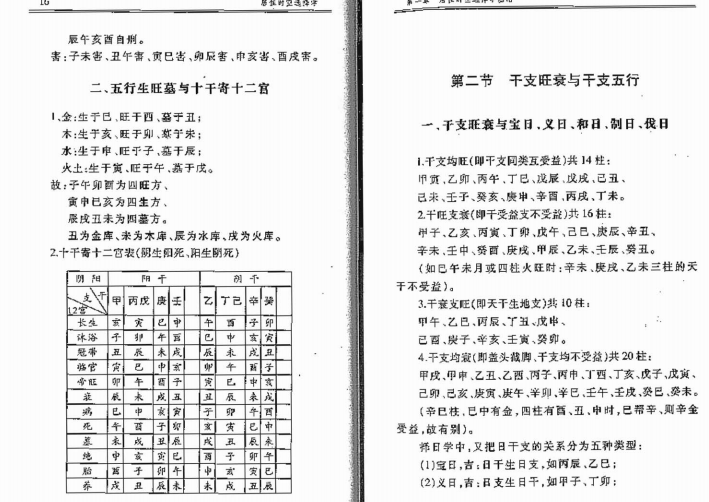 16
居住时空选择学
辰午亥酉自刑。
害:子未害、丑午害、寅巳害、卯辰害、申亥害、酉戌害。
二、五行生旺墓与十干寄十二宫
1.金:生于巳、旺于酉、墓于丑;
木:生于亥、旺于卯、墓于未;
水:生于申、旺于子、墓于辰;
火土:生于寅、旺于午、墓于戌。
故:子午卯酉为四旺方、
寅申巳亥为四生方、
辰戌丑未为四墓方。
丑为金库、未为木库、辰为水库、戌为火库。
2.十干寄十二宫表(阴生阳死、阳生阴死)
阴阳 阳干 阴干
支 干 12宫 甲 丙戊 庚 壬 乙 丁己 辛 癸
长生 亥 寅 巳 申 午 酉 子 卯
沐浴 子 卯 午 酉 巳 申 亥 寅
冠带 丑 辰 未 戌 辰 未 戌 丑
临官 寅 巳 申 亥 卯 午 酉 子
帝旺 卯 午 酉 子 寅 巳 申 亥
衰 辰 未 戌 丑 丑 辰 未 戌
病 巳 申 亥 寅 子 卯 午 酉
死 午 酉 子 卯 亥 寅 巳 申
墓 未 戌 丑 辰 戌 丑 辰 未
绝 申 亥 寅 巳 酉 子 卯 午
胎 酉 子 卯 午 申 亥 寅 巳
养 戌 丑 辰 未 未 戌 丑 辰
第二节 干支旺衰与干支五行
一、干支旺衰与宝日、义日、和日、制日、伐日
1.干支均旺(即干支同类互受益)共14柱:
甲寅、乙卯、丙午、丁巳、戊辰、戊戌、己丑、
己未、壬子、癸亥、庚申、辛酉、丙戌、丁未。
2.干旺支衰(即干受益支不受益)共16柱:
甲子、乙亥、丙寅、丁卯、戊午、己巳、庚辰、辛丑、
辛未、壬申、癸酉、庚戌、甲辰、乙未、壬辰、癸丑。
(如巳午未月或四柱火旺时:辛未、庚戌、乙未三柱的天
干不受益)。
3.干衰支旺(即天干生地支)共10柱:
甲午、乙巳、丙辰、丁丑、戊申、
己酉、庚子、辛亥、壬寅、癸卯。
4.干支均衰(即盖头截脚、干支均不受益)共20柱:
甲戌、甲申、乙丑、乙酉、丙子、丙申、丁酉、丁亥、戊子、戊寅、
己卯、己亥、庚寅、庚午、辛卯、辛巳、壬午、壬戌、癸巳、癸未。
(辛巳柱、巳中有金,四柱有酉、丑、申时,巳帮辛、则辛金
受益,故有别)。
择日学中,又把日干支的关系分为五种类型:
(1)宝日,吉:日干生日支,如丙辰、乙巳;
(2)义日,吉:日支生日干,如甲子、丁卯;